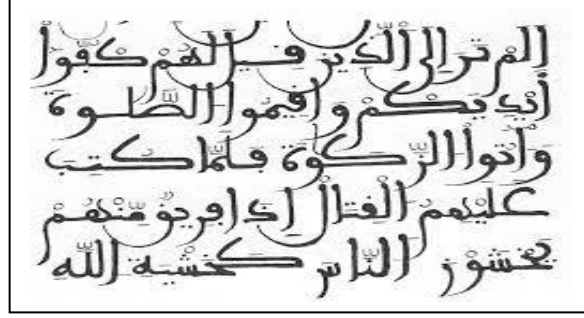 الم تر إلى الذين قيل لهم كفوا
أيديكم وأقيموا الصلوة
وءاتوا الزكوة فلما كتب
عليهم القتال إذا فريق منهم
يخشون الناس كخشية الله